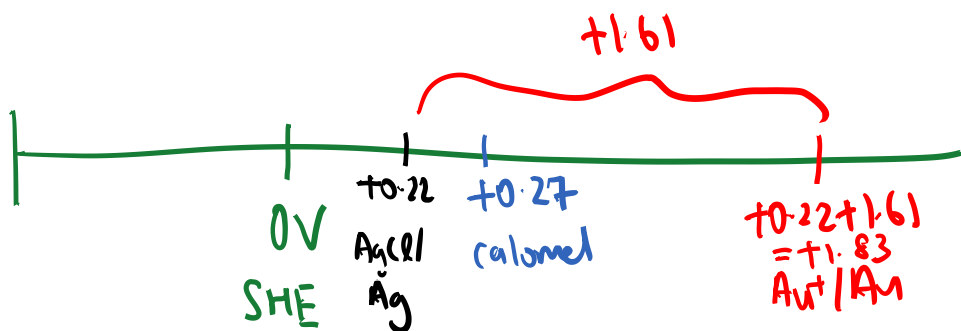 +1.61
0V
SHE
+0.22
AgCl/
Ag
+0.27
calomel
+0.22+1.61
=+1.83
Au+/Au